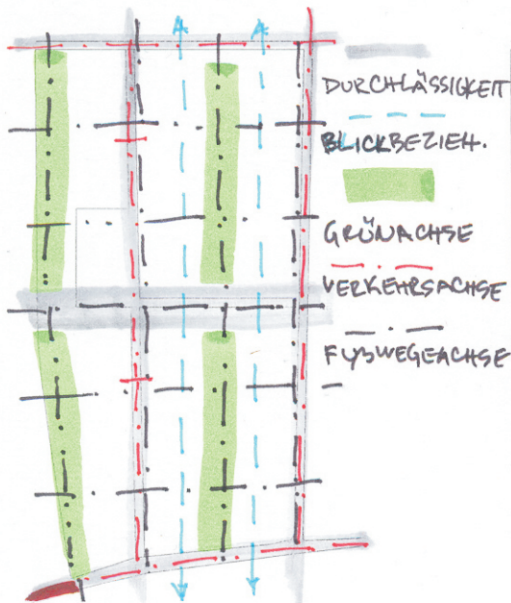 DURCHLÄSSIGKEIT
BLICKBEZIEH.
GRÜNACHSE
VERKEHRSACHSE
FUßWEGEACHSE